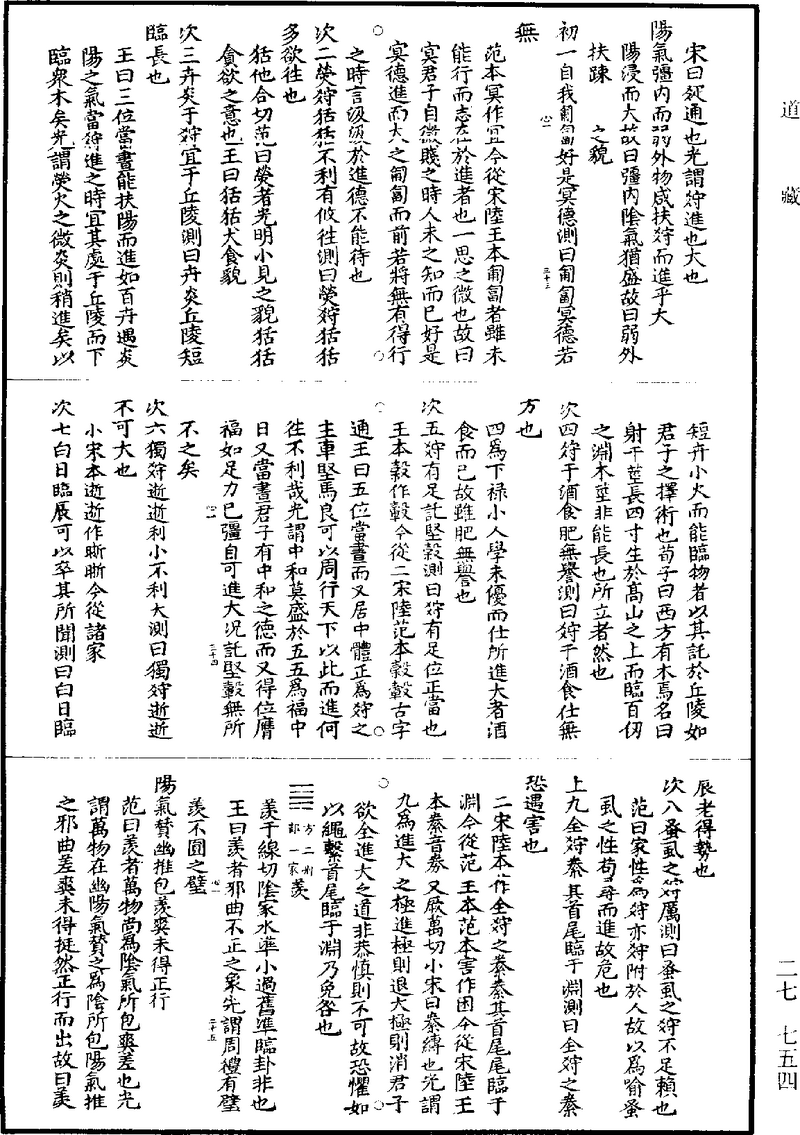 道藏
宋曰㚇通也光謂狩進也大也
陽氣彊內而弱外物咸扶狩而進乎大
陽浸而大故曰彊內陰氣猶盛故曰弱外
扶踈之貌
初一自我匍匐好是冥德測曰匍匐冥德若
無
范本冥作宜今從宋陸王本匍匐者雖未
能行而志在於進者也一思之微也故曰
冥君子自微賤之時人未之知而已好是
冥德進而大之匍匐而前若將無有得行
之時言級級於進德不能待也
次二熒狩狧狧不利有攸往測曰熒狩狧狧
多欲往也
狧他合切范曰熒者光明小見之貌狧狧
貪欲之意也王曰狧狧犬食貌
次三卉炎于狩宜于丘陵測曰卉炎丘陵短
臨長也
王曰三位當晝能扶陽而進如百卉遇炎
陽之氣當狩進之時宜其處于丘陵而下
臨衆木矣光謂熒火之微炎則稍進矣以
短卉小火而能臨物者以其託於丘陵如
君子之擇術也荀子曰西方有木焉名曰
射干莖長四寸生於高山之上而臨百仞
之淵木莖非能長也所立者然也
次四狩于酒食肥無譽測曰狩于酒食仕無
方也
四爲下祿小人學未優而仕所進大者酒
食而已故雖肥無譽也
次五狩有足託堅轂測曰狩有足位正當也
王本轂作轂今從二宋陸范本轂轂古字
通王曰五位當晝而又居中體正爲狩之
主車堅馬良可以周行天下以此而進何
往不利哉光謂中和莫盛於五五爲福中
日又當晝君子有中和之德而又得位膺
福如足力已彊自可進大況託堅轂無所
不之矣
次六獨狩逝逝利小不利大測曰獨狩逝逝
不可大也
小宋本逝逝作晰晰今從諸家
次七白日臨辰可以卒其所聞測曰白日臨
辰老得勢也
次八蚤虱之狩厲測曰蚤虱之狩不足賴也
范曰家性爲狩亦狩附於人故以爲喻蚤
虱之性苟尋而進故危也
上九全狩絭其首尾臨于淵測曰全狩之絭
恐遇害也
二宋陸本作全狩之絭絭其首尾尾臨于
淵今從范王本范本害作困今從宋陸王
本絭音劵又厥萬切小宋曰絭縛也光謂
九爲進大之極進極則退大極則消君子
欲全進大之道非恭慎則不可故恐懼如
以繩繫首尾臨于淵乃免咎也
一方二州一部一家羨
羨于線切陰家水準小過舊準臨卦非也
王曰羨者邪曲不正之象光謂周禮有璧
羨不圓之璧
陽氣贊幽推包羨爽未得正行
范曰羨者萬物尚爲陰氣所包爽差也光
謂萬物在幽陽氣贊之爲陰所包陽氣推
之邪曲差爽未得挺然正行而出故曰羨
二七
七五四